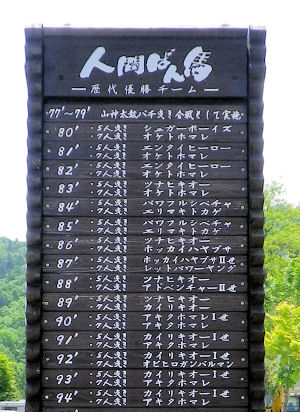 人間ばん馬
歴代優勝チーム
77'~79' 山神太鼓バチ曳き合戦として実施
80' ・5人曳き シュガーボーイズ
・7人曳き オケトホマレ
81' ・5人曳き エンタイヒーロー
・7人曳き オケトホマレ
82' ・5人曳き エンタイヒーロー
・7人曳き オケトホマレ
83' ・5人曳き ツナヒキオー
・7人曳き オケトホマレ
84' ・5人曳き パワフルシベチャ
・7人曳き エリマキトカゲ
85' ・5人曳き パワフルシベチャ
・7人曳き エリマキトカゲ
86' ・5人曳き ツナヒキオー
・7人曳き ホッカイハヤブサ
87' ・5人曳き ホッカイハヤブサⅡ世
・7人曳き レットパワーヤング
88' ・5人曳き ツナヒキオー
・7人曳き アドベンチャーⅡ世
89' ・5人曳き ツナヒキオー
・7人曳き カイリキオー
90' ・5人曳き アキタホマレⅠ世
・7人曳き アキタホマレ
91' ・5人曳き カイリキオーⅠ世
・7人曳き アキタホマレ
92' ・5人曳き カイリキオーⅠ世
・7人曳き オビヒロガンバルマン
93' ・5人曳き カイリキオーⅠ世
・7人曳き アキタホマレ
94' ・5人曳き アキタホマレⅠ世
・7人曳き アキタホマレ